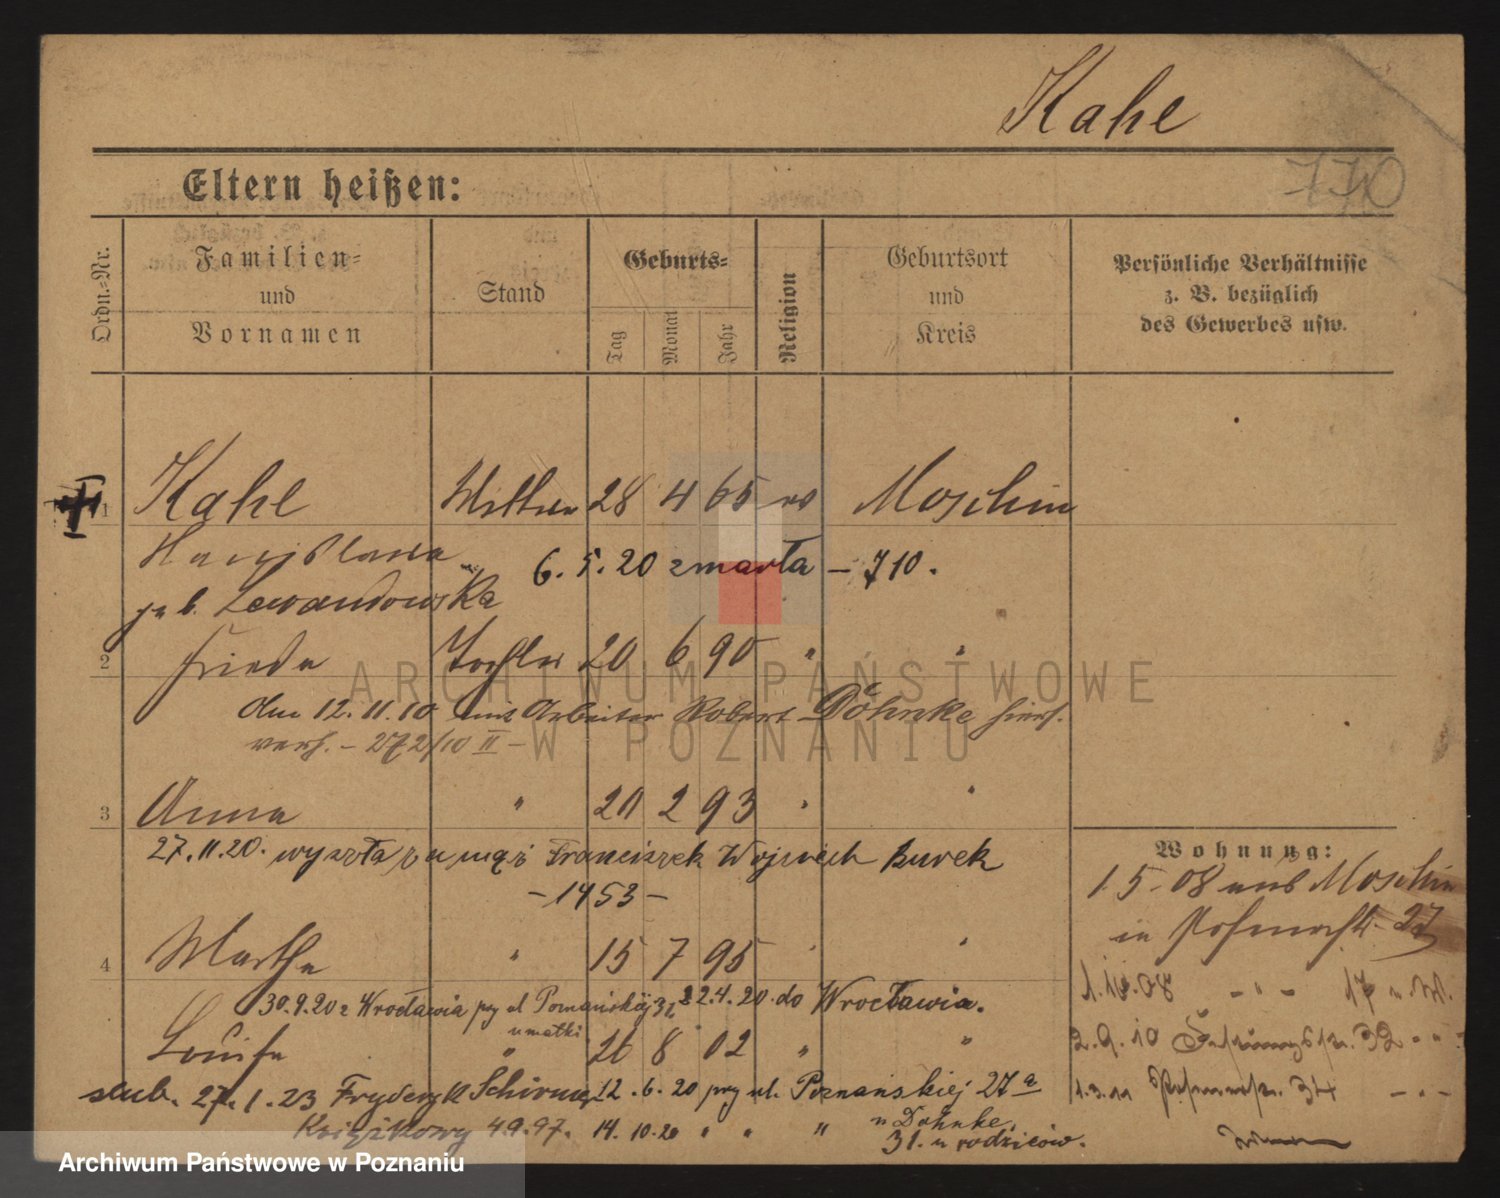 Kahe
770
Eltern heißen:
Ordn.-Nr.
Familien-
und
Vornamen
Stand
Geburts-
Tag
Monat
Jahr
Religion
Geburtsort
und
Kreis
Persönliche Verhältnisse
z. B. bezüglich
des Gewerbes usw.
1 Kahe 28 4 65 Moschin
6. 5. 20 zmarła – 710.
geb. Lewandowska
2 Frieda Tochter 20 6 90 " "
den 12. 11. 10 mit Arbeiter Robert Döhnke hier
verh. – 272/10 II –
3 Anna " 20 2 93 " "
27. 11. 20. wyszła za mąż Franciszek Wojciech Burek
– 1453 –
4 Martha " 15 7 95 " "
30. 9. 20 z Wrocławia przy ul Poznańskiej 31, 22. 4. 20. do Wrocławia.
u matki
Louise " 26 8 02 " "
ślub. 27. 1. 23 Fryderyk Schirmer 12. 6. 20 przy ul. Poznańskiej 27a
u Dohnke,
Książkowy 4.9.97. 14. 10. 20 " " " 31. u rodziców.
Wohnung:
1. 5. 08 aus Moschin
in 27
1. 10. 08 – " – 17
2. 9. 10 32 " "
1. 3. 11 34 – " –
ARCHIWUM PAŃSTWOWE
W POZNANIU
Archiwum Państwowe w Poznaniu